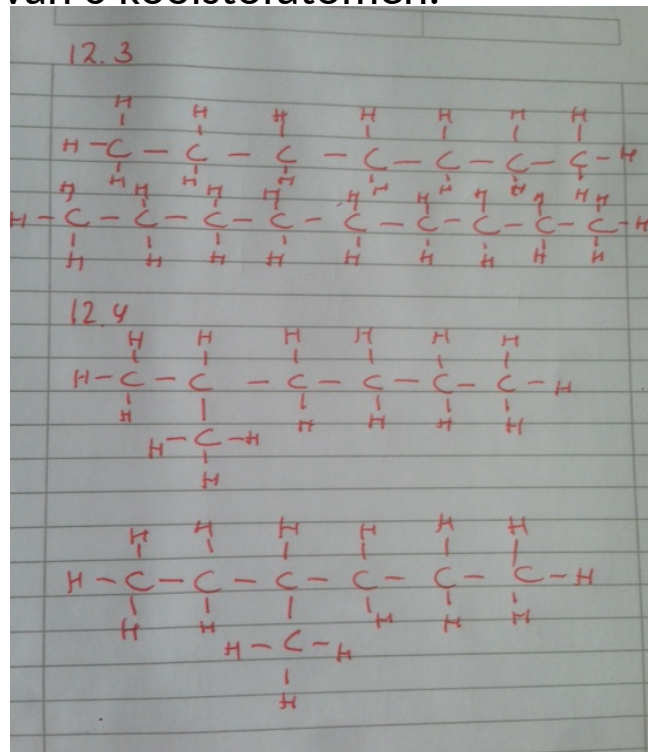 van 6 koolstofatomen.
12.3
H H H H H H H
H-C-C-C-C-C-C-C-H
H H H H H H H
H H H H H H H H H
H-C-C-C-C-C-C-C-C-C-H
H H H H H H H H H
12.4
H H H H H H
H-C-C-C-C-C-C-H
H H H H H
H-C-H
H
H H H H H H
H-C-C-C-C-C-C-H
H H H H H
H-C-H
H